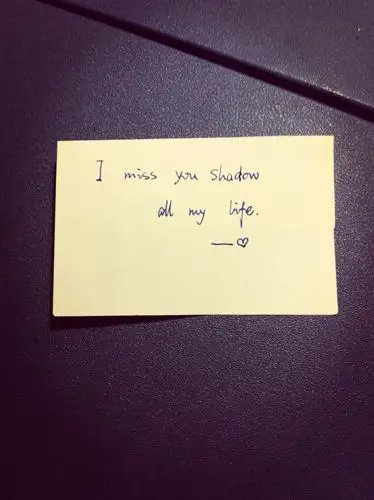 I miss you shadow
all my life.
—♡